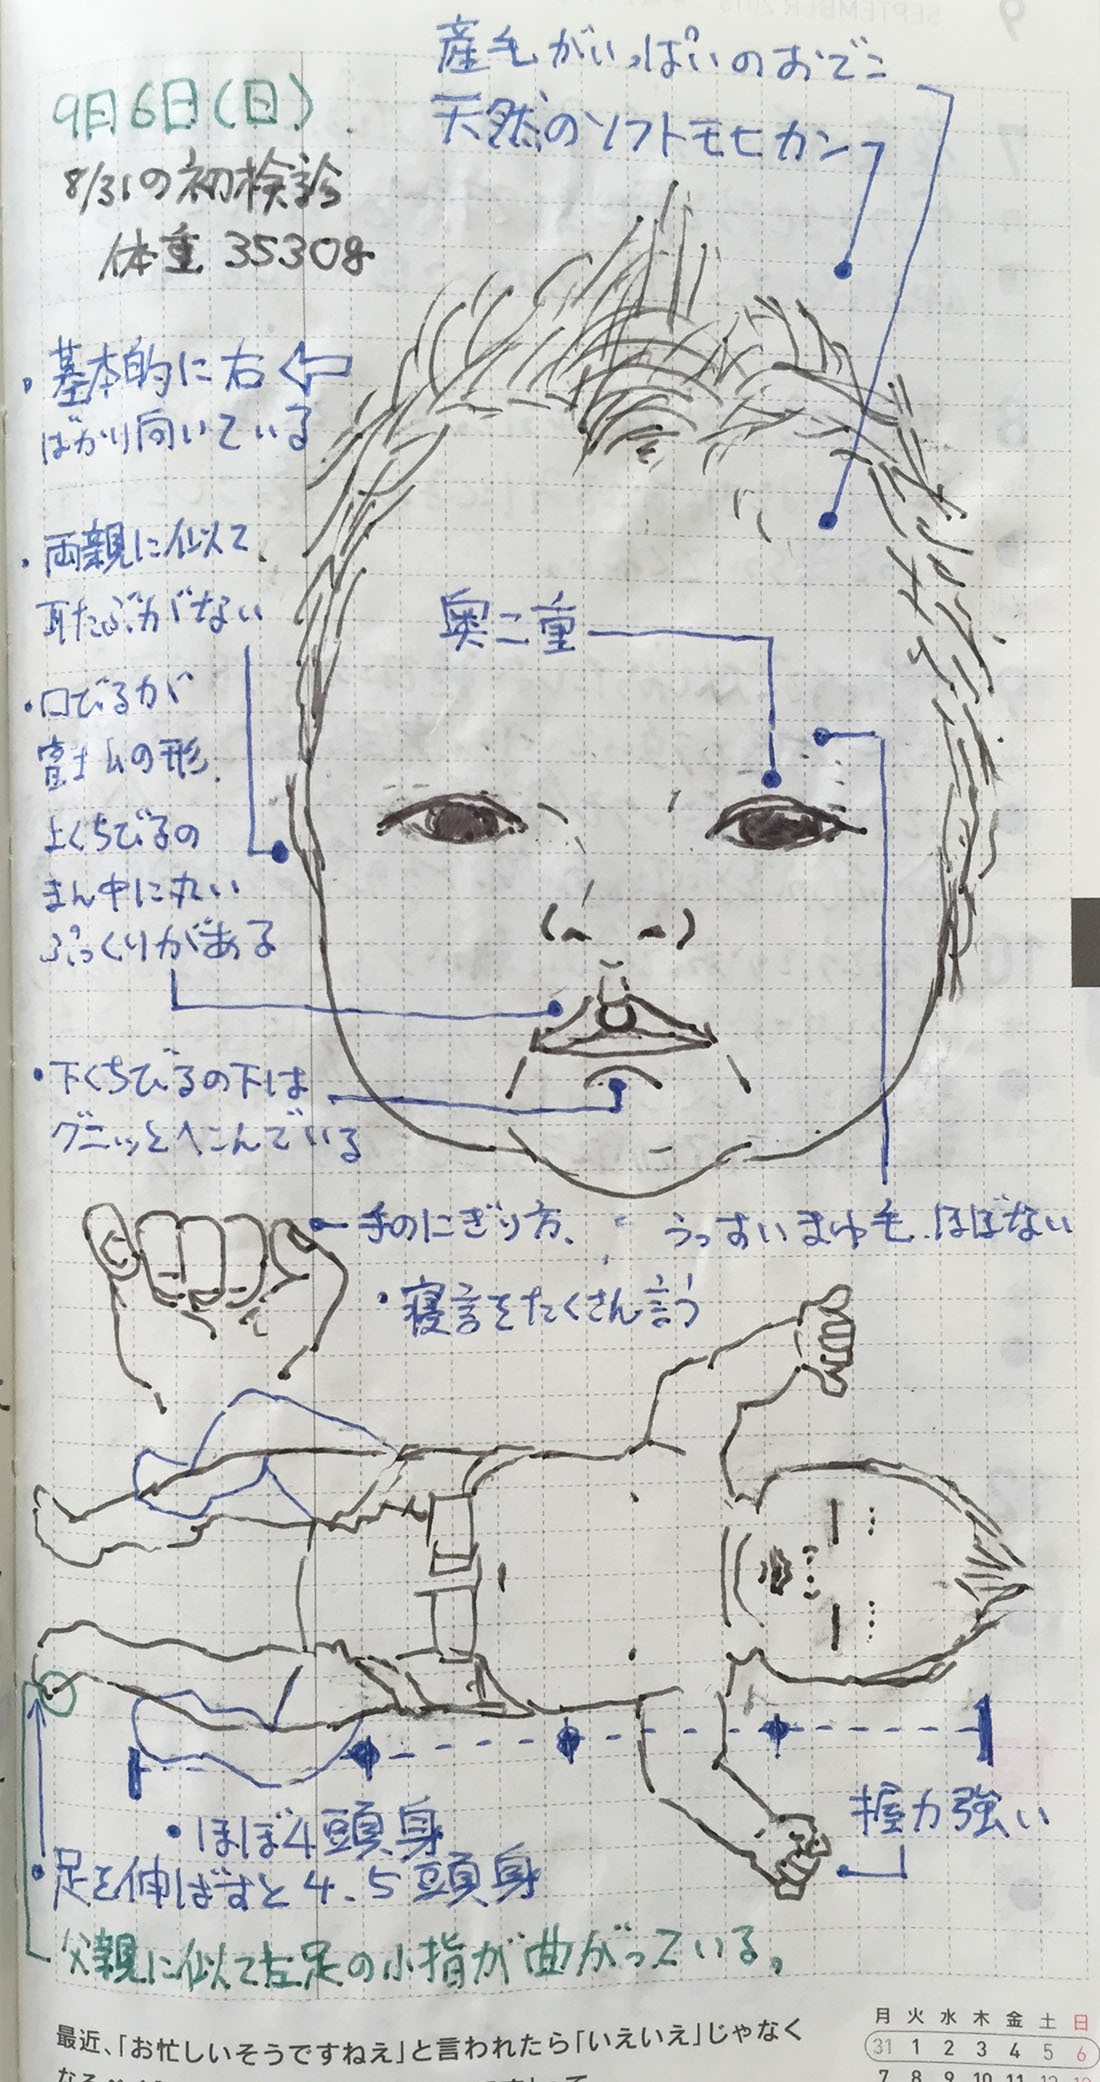 産毛がいっぱいのおでこ
天然のソフトモヒカン
9月6日(日)
8/31の初検診
体重 3530g
・基本的に右
ばかり向いている
・両親に似て、
耳たぶがない
・口びるが
富士山の形、
上くちびるの
まん中に丸い
ぷっくりがある
奥二重
・下くちびるの下は
グニッとへこんでいる
手のにぎり方、
うっすいまゆ毛、ほぼない
・寝言をたくさん言う
握力強い
・ほぼ4頭身
足を伸ばすと4.5頭身
父親に似て左足の小指が曲がっている。
最近、「お忙しいそうですねえ」と言われたら「いえいえ」じゃなく
月 火 水 木 金 土 日
31 1 2 3 4 5 6
7 8 9 10 11 12